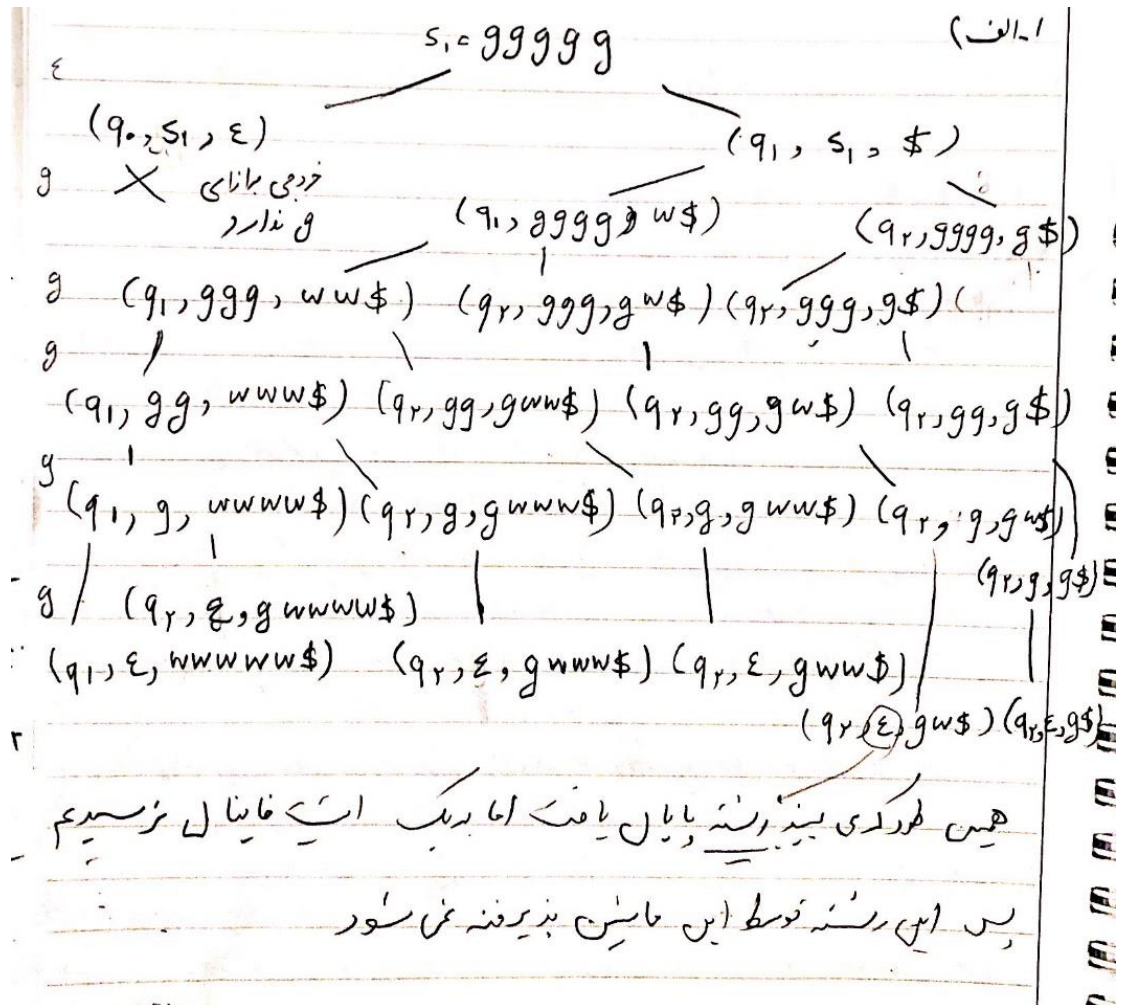 ۱-الف)
s₁ = ggggg
ε
(q۰, s₁, ε) (q₁, s₁, $)
g خروجی با نای
g ندارد
(q₁, gggg, w$) (q۲, gggg, g$)
g (q₁, ggg, ww$) (q۲, ggg, gw$) (q۲, ggg, g$) (
g
(q₁, gg, www$) (q۲, gg, gww$) (q۲, gg, gw$) (q۲, gg, g$)
g
(q₁, g, wwww$) (q۲, g, gwww$) (q۲, g, gww$) (q۲, g, gw$)
(q۲, g, g$)
g (q۲, ε, gwwww$)
(q₁, ε, wwwww$) (q۲, ε, gwww$) (q۲, ε, gww$)
(q۲, ε, gw$) (q۲, ε, g$)
همین طور که می بینید رشته پایان یافت اما به یک استیت فاینال نرسیدیم
پس این رشته توسط این ماشین پذیرفته نمی شود